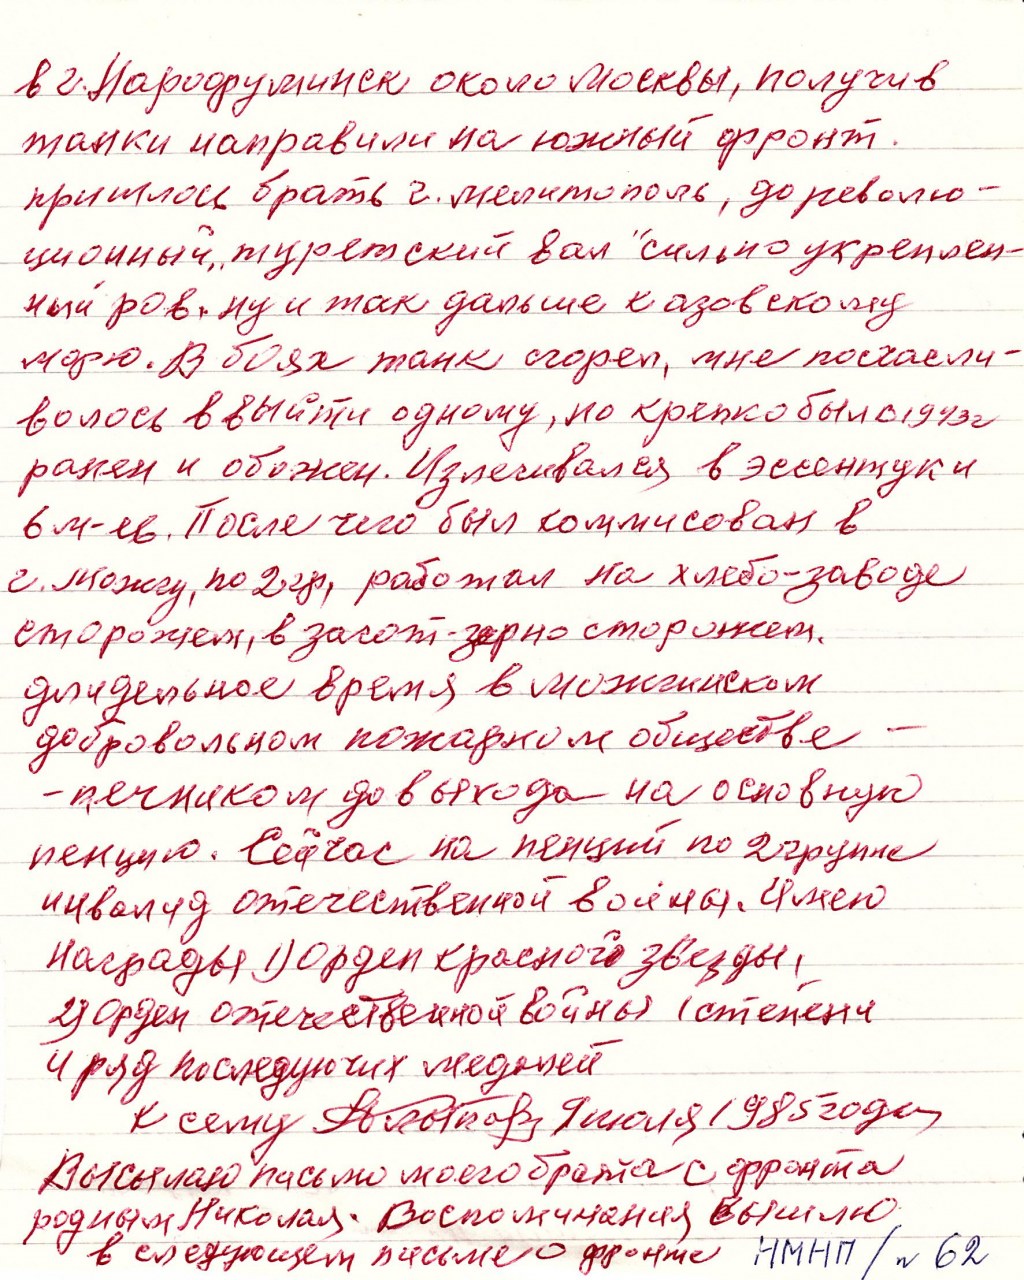 в г. Народруминск около Москвы, получив
танки направили на южный фронт.
пришлось брать г. мелитополь, до револю-
ционный, "турецкий вал" сильно укреплен-
ный ров. ну и так дальше к азовскому
морю. В боях танк сгорел, мне посчасли-
волось ввыйти одному, но крепко был с 1943г
ранен и обожен. Излечивался в эссентуки
6 м-ев. После чего был коммисован в
г. можгу, по 2 гр, работал на хлебо-заводе
сторожем, в загот-зерно сторожем.
длидельное время в можгинском
добровольном пожарном обществе -
-печником до выхода на основную
пенцию. Сейчас на пенций по 2 групне
инвалид отечественной войны. Имею
награды 1) Орден красного звезды,
2) Орден отечественной войны 1 степени
и ряд последующих медалей
К сему 9 июля 1985 года,
Высылаю письмо моего брата с фронта
родным Николая. Воспоминания вышлю
в следующем письме о фронте НМНП/п 62